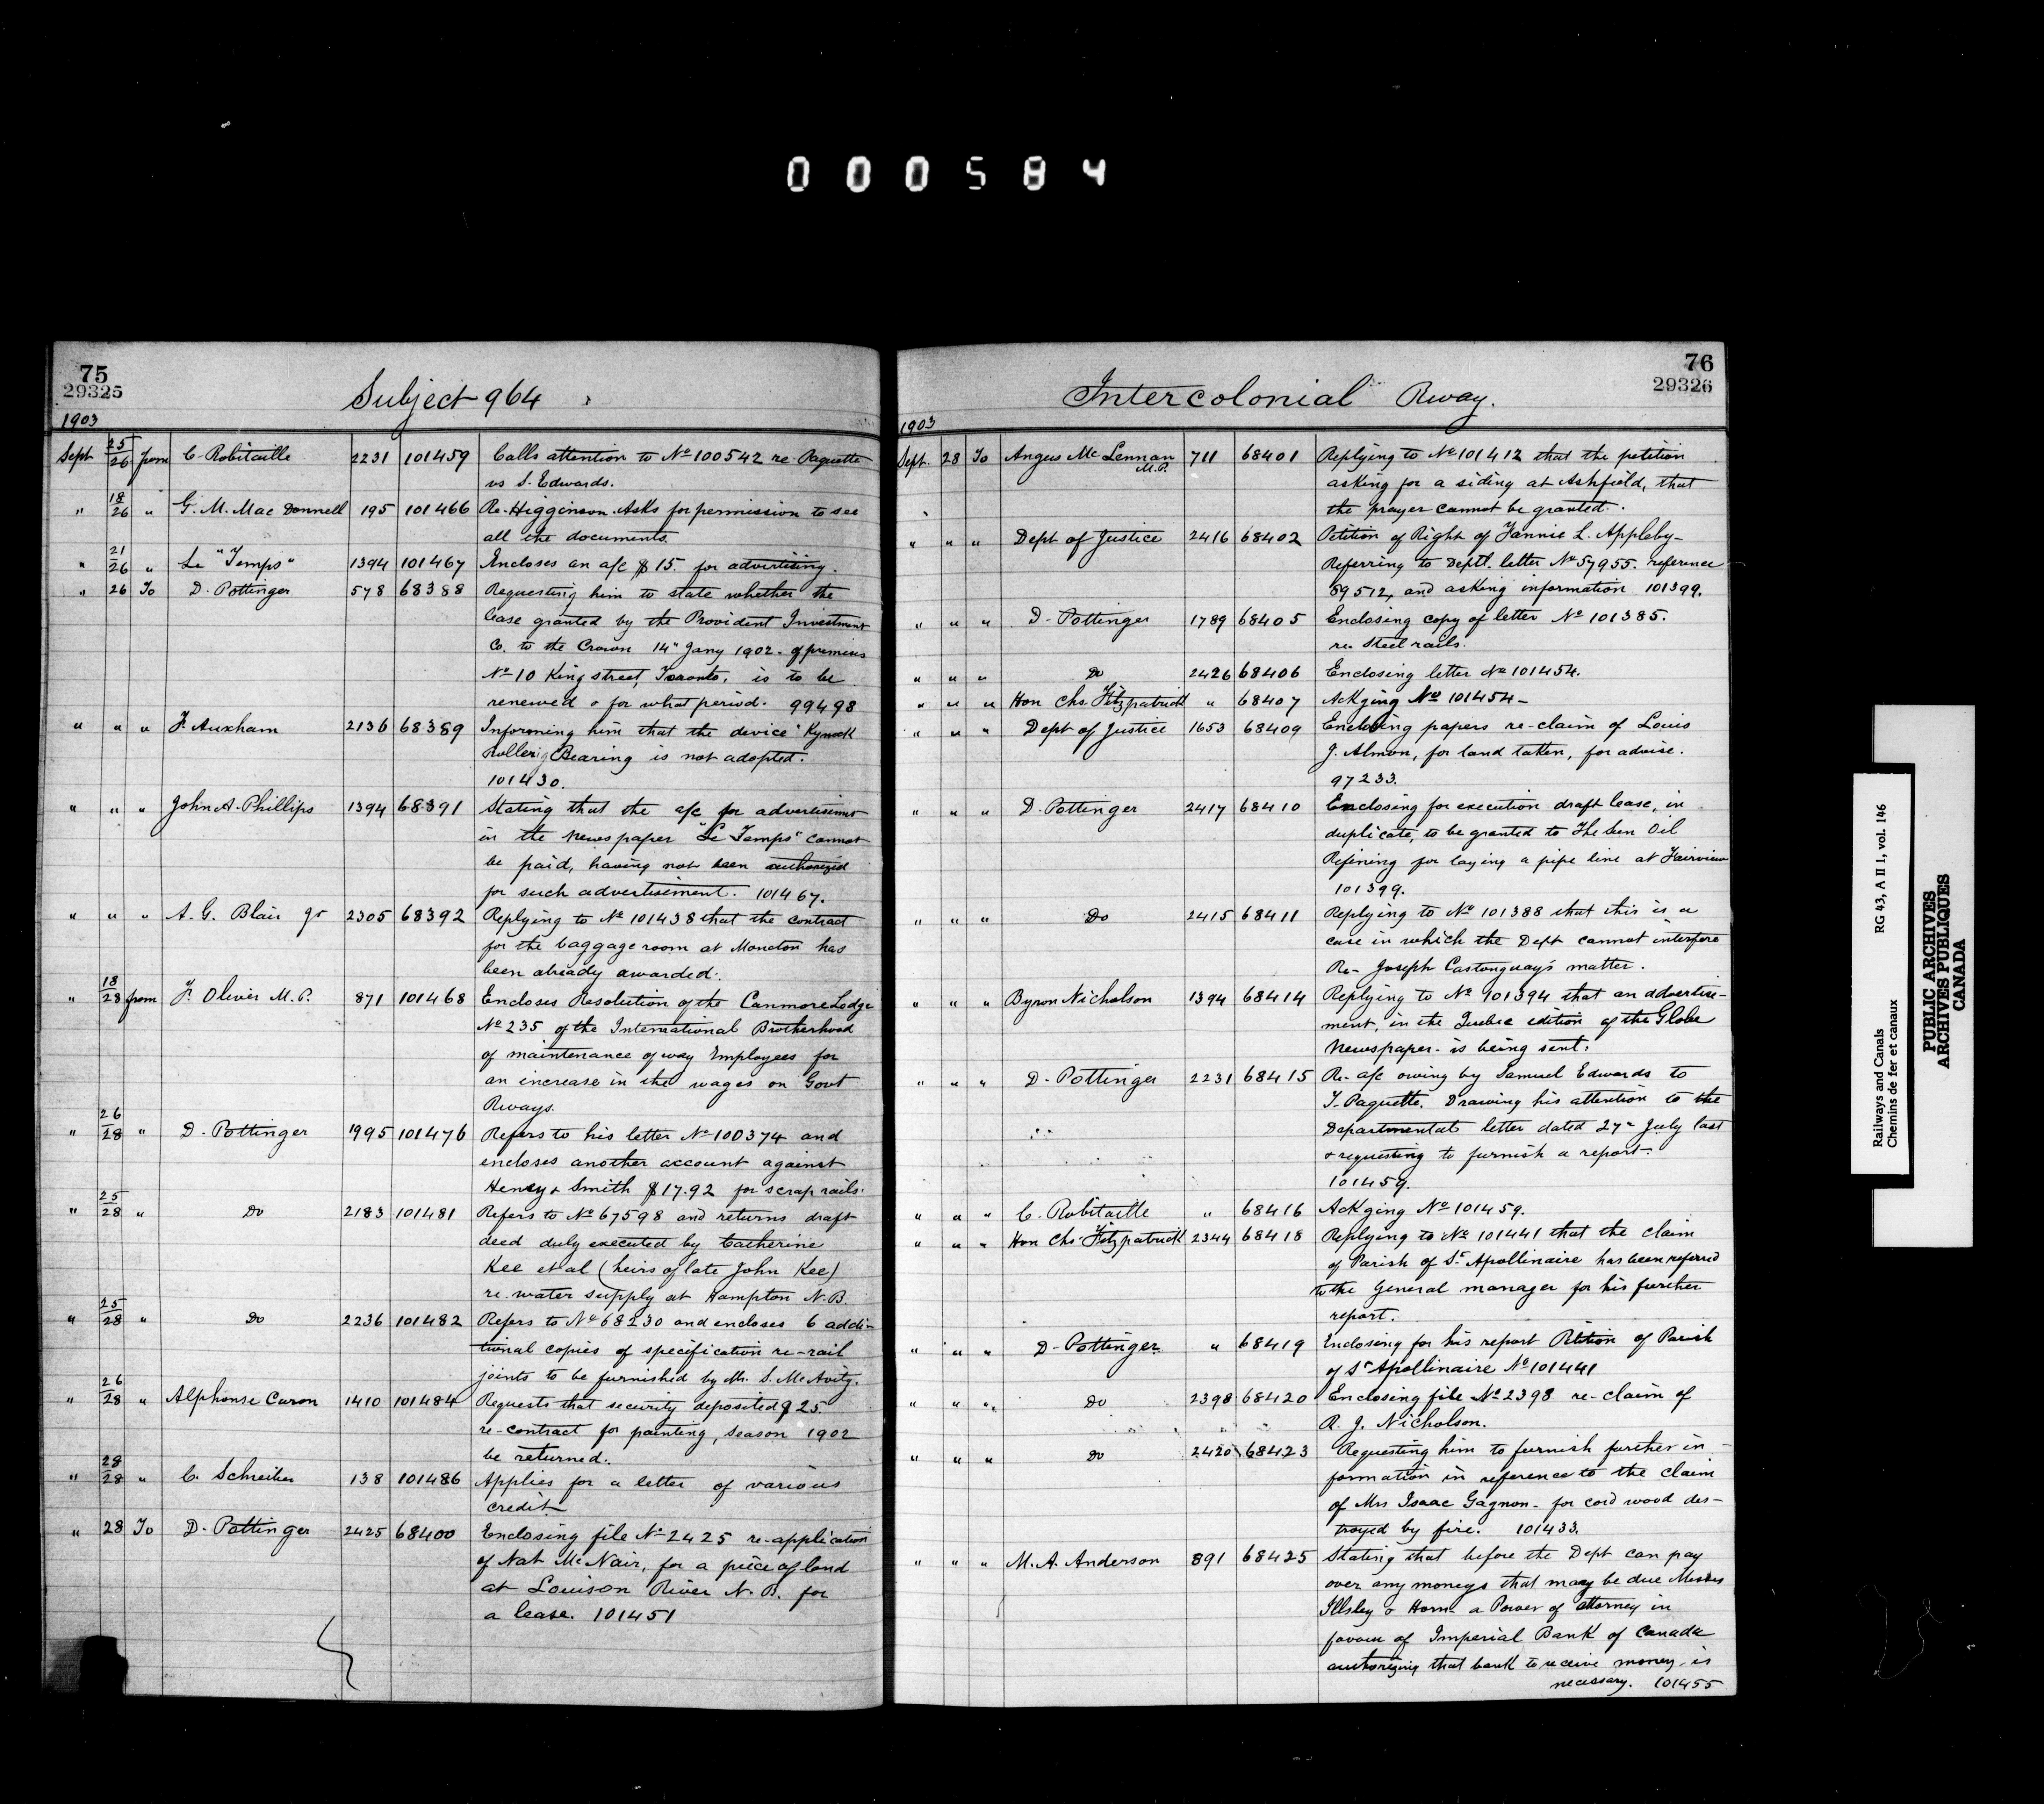 000584
75
29325
Subject 964
1903
Sept 25/26 from C. Robitaille 2231 101459 Calls attention to No 100542 re Paquette
vs S. Edwards.
" 18/26 " G. M. Mac Donnell 195 101466 Re. Higginson. Asks for permission to see
all the documents.
" 21/26 " Le "Temps" 1394 101467 Encloses an a/c $15. for advertising.
" 26 To D. Pottinger 578 68388 Requesting him to state whether the
lease granted by the Provident Investment
Co. to the Crown 14" Jany 1902 - of premises
No 10 King street, Toronto, is to be
renewed & for what period. 99498
" " " F. Auxham 2136 68389 Informing him that the device "Kynock
Roller Bearing is not adopted.
101430.
" " " John A. Phillips 1394 68391 Stating that the a/c for advertisimt
in the Newspaper "Le Temps" cannot
be paid, having not been authorized
for such advertisement. 101467.
" " " A. G. Blair Jr 2305 68392 Replying to No 101438 that the contract
for the baggage room at Moncton has
been already awarded.
" 18/28 from F. Oliver M.P. 871 101468 Encloses Resolution of the Canmore Lodge
No 235 of the International Brotherhood
of maintenance of way Employees for
an increase in the wages on Govt
Rways.
" 26/28 " D. Pottinger 1995 101476 Refers to his letter No 100374 and
encloses another account against
Henry & Smith $17.92 for scrap rails.
" 25/28 " Do 2183 101481 Refers to No 67598 and returns draft
deed duly executed by Catherine
Kee et al (heirs of late John Kee)
re. water supply at Hampton N.B.
" 25/28 " Do 2236 101482 Refers to No 68230 and encloses 6 addi-
tional copies of specification re-rail
joints to be furnished by Mr. S. McAvity.
" 26/28 " Alphonse Caron 1410 101484 Requests that security deposited $25.
re-contract for painting, season 1902
be returned.
" 28/28 " C. Schreiber 138 101486 Applies for a letter of various
credit.
" 28 To D. Pottinger 2425 68400 Enclosing file No 2425 re-application
of Nat McNair, for a piece of land
at Louison River N.B. for
a lease. 101451
76
29326
Intercolonial Rway.
1903
Sept. 28 To Angus McLennan M.P. 711 68401 Replying to No 101412 that the petition
asking for a siding at Ashfield, that
the prayer cannot be granted.
" " " Dept of Justice 2416 68402 Petition of Right of Fannie L. Appleby-
Referring to Deptl. letter No 57955. reference
59512, and asking information 101399.
" " " D. Pottinger 1789 68405 Enclosing copy of letter No 101385.
re Steel rails.
" " " Do 2426 68406 Enclosing letter No 101454.
" " " Hon Chs. Fitzpatrick " 68407 Ackging No 101454-
" " " Dept of Justice 1653 68409 Enclosing papers re-claim of Louis
J. Almon, for land taken, for advise.
97233.
" " " D. Pottinger 2417 68410 Enclosing for execution draft lease, in
duplicate, to be granted to The Sun Oil
Refining for laying a pipe line at Fairview
101399.
" " " Do 2415 68411 Replying to No 101388 that this is a
case in which the Dept cannot interfere
Re- Joseph Castonguay's matter.
" " " Byron Nicholson 1394 68414 Replying to No 101394 that an advertise-
ment, in the Quebec edition of the Globe
Newspaper - is being sent.
" " " D. Pottinger 2231 68415 Re- a/c owing by Samuel Edwards to
T. Paquette. Drawing his attention to the
Departmental letter dated 27" July last
& requesting to furnish a report.
101459.
" " " C. Robitaille " 68416 Ackging No 101459.
" " " Hon Chs. Fitzpatrick 2344 68418 Replying to No 101441 that the claim
of Parish of St Apollinaire has been referred
to the General manager for his further
report.
" " " D. Pottinger " 68419 Enclosing for his report Petition of Parish
of St Apollinaire No 101441
" " " Do 2398 68420 Enclosing file No 2398 re-claim of
R. J. Nicholson.
" " " Do 2420 68423 Requesting him to furnish further in-
formation in reference to the claim
of Mrs Isaac Gagnon - for cord wood des-
troyed by fire. 101433.
" " " M. A. Anderson 891 68425 Stating that before the Dept can pay
over any moneys that may be due Messrs
Illsley & Horn a Power of Attorney in
favour of Imperial Bank of Canada
authorizing that bank to receive money, is
necessary. 101455
Railways and Canals RG 43, A II 1, vol. 146
Chemins de fer et canaux
PUBLIC ARCHIVES
ARCHIVES PUBLIQUES
CANADA